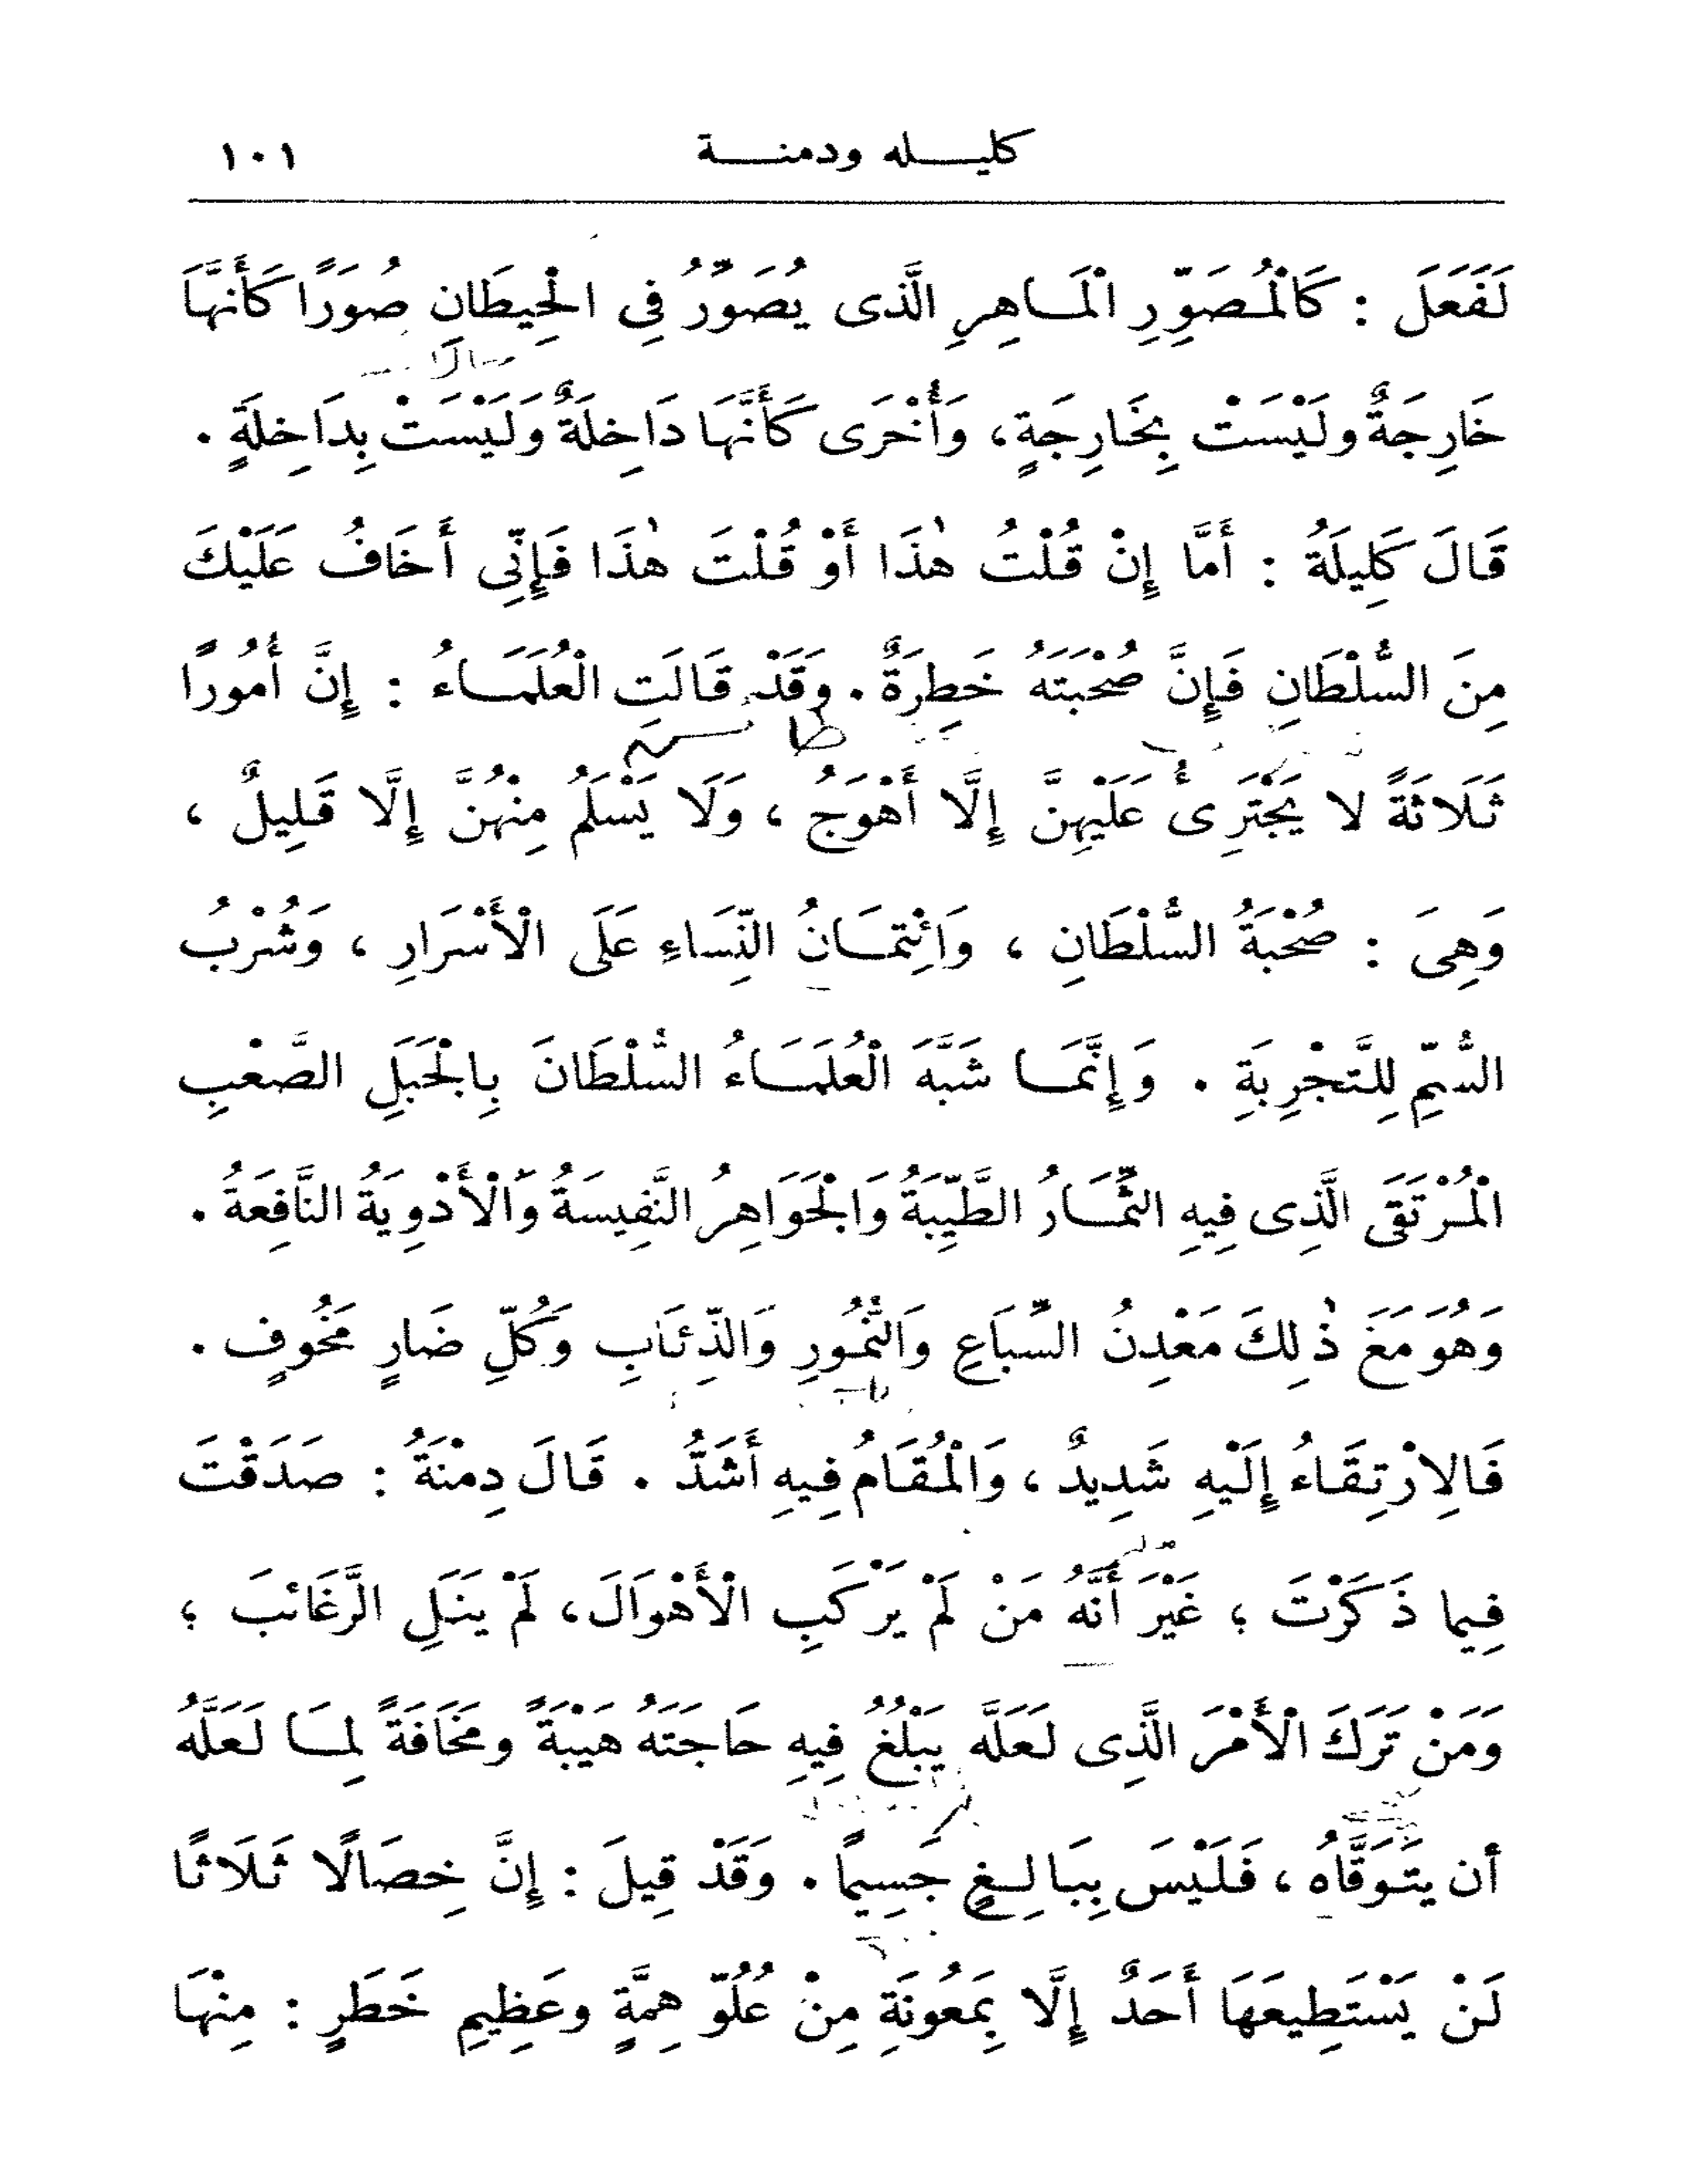 كليله ودمنة ١٠١
لَفَعَلَ : كَالْمُصَوِّرِ الْمَاهِرِ الَّذى يُصَوِّرُ فِى الْحِيطَانِ صُوَرًا كَأَنَّهَا
خَارِجَةٌ ولَيْسَتْ بِخَارِجَةٍ، وَأُخْرَى كَأَنَّهَا دَاخِلَةٌ وَلَيْسَتْ بِدَاخِلَةٍ .
قَالَ كَلِيلَةُ : أَمَّا إِنْ قُلْتُ هٰذَا أَوْ قُلْتَ هٰذَا فَإِنِّى أَخَافُ عَلَيْكَ
مِنَ السُّلْطَانِ فَإِنَّ صُحْبَتَهُ خَطِرَةٌ . وَقَدْ قَالَتِ الْعُلَمَاءُ : إِنَّ أُمُورًا
ثَلَاثَةً لا يَجْتَرِئُ عَلَيْهِنَّ إِلَّا أَهْوَجُ ، وَلَا يَسْلَمُ مِنْهُنَّ إِلَّا قَلِيلٌ ،
وَهِىَ : صُحْبَةُ السُّلْطَانِ ، وَائْتِمَانُ النِّسَاءِ عَلَى الْأَسْرَارِ ، وَشُرْبُ
السُّمِّ لِلتَّجْرِبَةِ . وَإِنَّمَا شَبَّهَ الْعُلَمَاءُ السُّلْطَانَ بِالْجَبَلِ الصَّعْبِ
الْمُرْتَقَى الَّذِى فِيهِ الثِّمَارُ الطَّيِّبَةُ وَالْجَوَاهِرُ النَّفِيسَةُ وَالْأَدْوِيَةُ النَّافِعَةُ .
وَهُوَ مَعَ ذٰلِكَ مَعْدِنُ السِّبَاعِ وَالنُّمُورِ وَالذِّئَابِ وَكُلِّ ضَارٍ مَخُوفٍ .
فَالِارْتِقَاءُ إِلَيْهِ شَدِيدٌ ، وَالْمُقَامُ فِيهِ أَشَدُّ . قَالَ دِمْنَةُ : صَدَقْتَ
فِيما ذَكَرْتَ ؛ غَيْرَ أَنَّهُ مَنْ لَمْ يَرْكَبِ الْأَهْوَالَ، لَمْ يَنَلِ الرَّغَائبَ ؛
وَمَنْ تَرَكَ الْأَمْرَ الَّذِى لَعَلَّه يَبْلُغُ فِيهِ حَاجَتَهُ هَيْبَةً ومَخَافَةً لِمَا لَعَلَّهُ
أن يَتَوَقَّاهُ ، فَلَيْسَ بِبَالِغٍ جَسِيمًا . وَقَدْ قِيلَ : إِنَّ خِصَالًا ثَلَاثًا
لَنْ يَسْتَطِيعَهَا أَحَدٌ إِلَّا بِمَعُونَةِ مِنْ عُلُوِّ هِمَّةٍ وعَظِيمِ خَطَرٍ : مِنْهَا